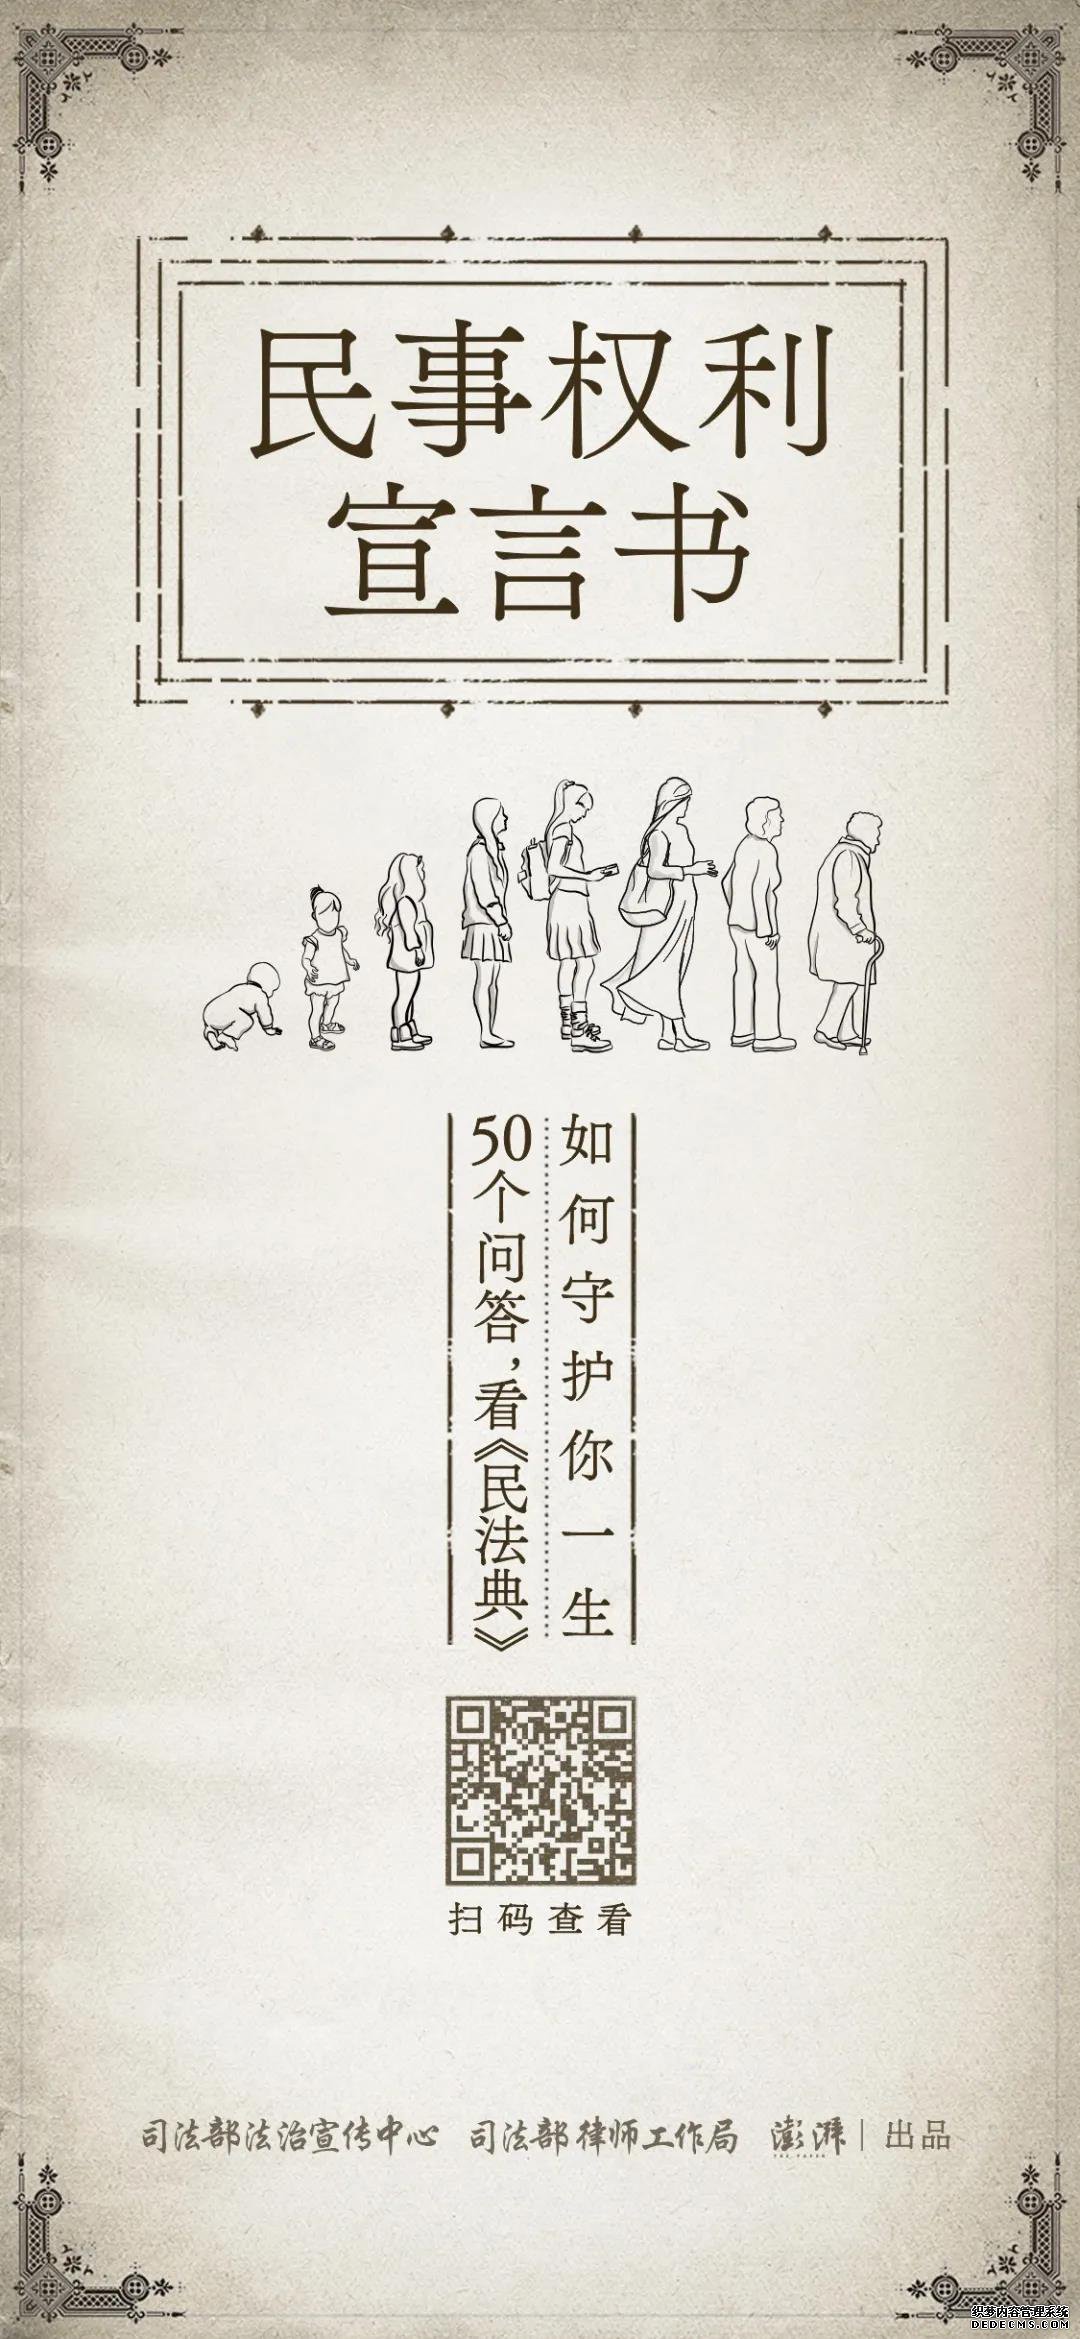 民事权利
宣言书
50个问答，看《民法典》
如何守护你一生
扫码查看
司法部法治宣传中心 司法部律师工作局 澎湃 THE PAPER | 出品
织梦内容管理系统
DEDECMS.COM